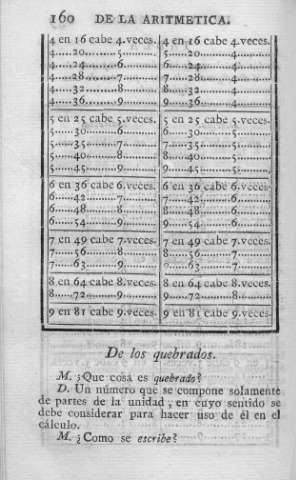 160 DE LA ARITMETICA.
4 en 16 cabe 4.veces. 4 en 16 cabe 4.veces.
4.....20.........5....... 5.....20.........4.......
4.....24.........6....... 6.....24.........4.......
4.....28.........7....... 7.....28.........4.......
4.....32.........8....... 8.....32.........4.......
4.....36.........9....... 9.....36.........4.......
5 en 25 cabe 5.veces. 5 en 25 cabe 5.veces.
5.....30.........6....... 6.....30.........5.......
5.....35.........7....... 7.....35.........5.......
5.....40.........8....... 8.....40.........5.......
5.....45.........9....... 9.....45.........5.......
6 en 36 cabe 6.veces. 6 en 36 cabe 6.veces.
6.....42.........7....... 7.....42.........6.......
6.....48.........8....... 8.....48.........6.......
6.....54.........9....... 9.....54.........6.......
7 en 49 cabe 7.veces. 7 en 49 cabe 7.veces.
7.....56.........8....... 8.....56.........7.......
7.....63.........9....... 9.....63.........7.......
8 en 64 cabe 8.veces. 8 en 64 cabe 8.veces.
8.....72.........9....... 9.....72.........8.......
9 en 81 cabe 9.veces. 9 en 81 cabe 9.veces.
De los quebrados.
M. ¿Que cosa es quebrado?
D. Un número que se compone solamente
de partes de la unidad, en cuyo sentido se
debe considerar para hacer uso de él en el
cálculo.
M. ¿Como se escribe?